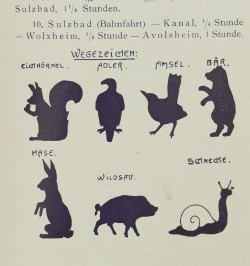 Sulzbad, 1¼ Stunden.
10, Sulzbad (Bahnfahrt) — Kanal, ¼ Stunde
— Wolxheim, ½ Stunde — Avolsheim, 1 Stunde.
WEGEZEICHEN:
EICHHÖRNEL. ADLER. AMSEL. BÄR.
HASE. WILDSAU. SCHNECKE.